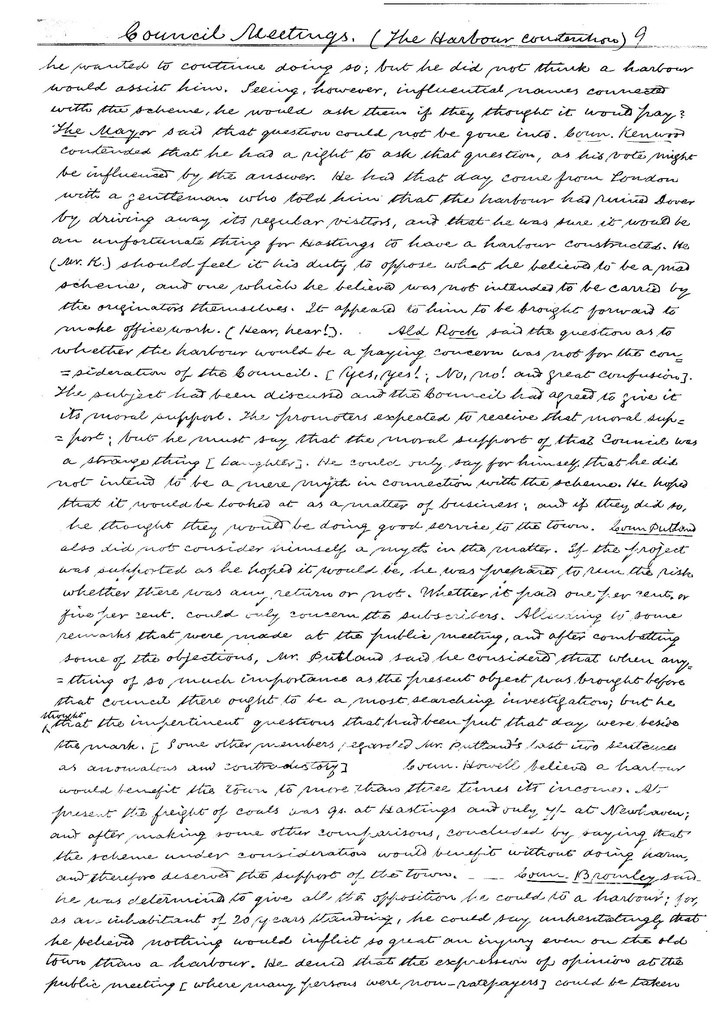 Council Meetings. (The Harbour contention) 9
he wanted to continue doing so; but he did not think a harbour
would assist him. Seeing, however, influential names connected
with the scheme, he would ask them if they thought it would pay?
The Mayor said that question could not be gone into. Coun. Kenwood
contended that he had a right to ask that question, as his vote might
be influenced by the answer. He had that day come from London
with a gentleman who told him that the harbour had ruined Dover
by driving away its regular visitors, and that he was sure it would be
an unfortunate thing for Hastings to have a harbour constructed. He
(Mr. K.) should feel it his duty to oppose what he believed to be a mad
scheme, and one which he believed was not intended to be carried by
the originators themselves. It appeared to him to be brought forward to
make office work. (Hear, hear!). Ald Rock said the question as to
whether the harbour would be a paying concern was not for the con=
=sideration of the Council. [Yes, yes!; No, no! and great confusion].
The subject had been discussed and the Council had agreed to give it
its moral support. The promoters expected to receive that moral sup=
=port; but he must say that the moral support of that Council was
a strange thing [Laughter]. He could only say for himself, that he did
not intend to be a mere myth in connection with the scheme. He hoped
that it would be looked at as a matter of business; and if they did so,
he thought they would be doing good service to the town. Coun Putland
also did not consider himself a myth in the matter. If the project
was supported as he hoped it would be, he was prepared to run the risk
whether there was any return or not. Whether it paid one per cent, or
five per cent. could only concern the subscribers. Alluding to some
remarks that were made at the public meeting, and after combatting
some of the objections, Mr. Putland said he considered that when any=
=thing of so much importance as the present object was brought before
that council there ought to be a most searching investigation; but he
thought that the impertinent questions that had been put that day were beside
the mark. [Some other members regarded Mr. Putland's last two sentences
as anomalous and contradictory] Coun. Howell believed a harbour
would benefit the town to more than three times its income. At
present the freight of coals was 9s. at Hastings and only 7/- at Newhaven;
and after making some other comparisons, concluded by saying that
the scheme under consideration would benefit without doing harm,
and therefore deserved the support of the town. — Coun. Bromley said
he was determined to give all the opposition he could to a harbour; for,
as an inhabitant of 20 years standing, he could say unhesitatingly that
he believed nothing would inflict so great an injury even on the old
town than a harbour. He denied that the expression of opinion at the
public meeting [where many persons were non-ratepayers] could be taken